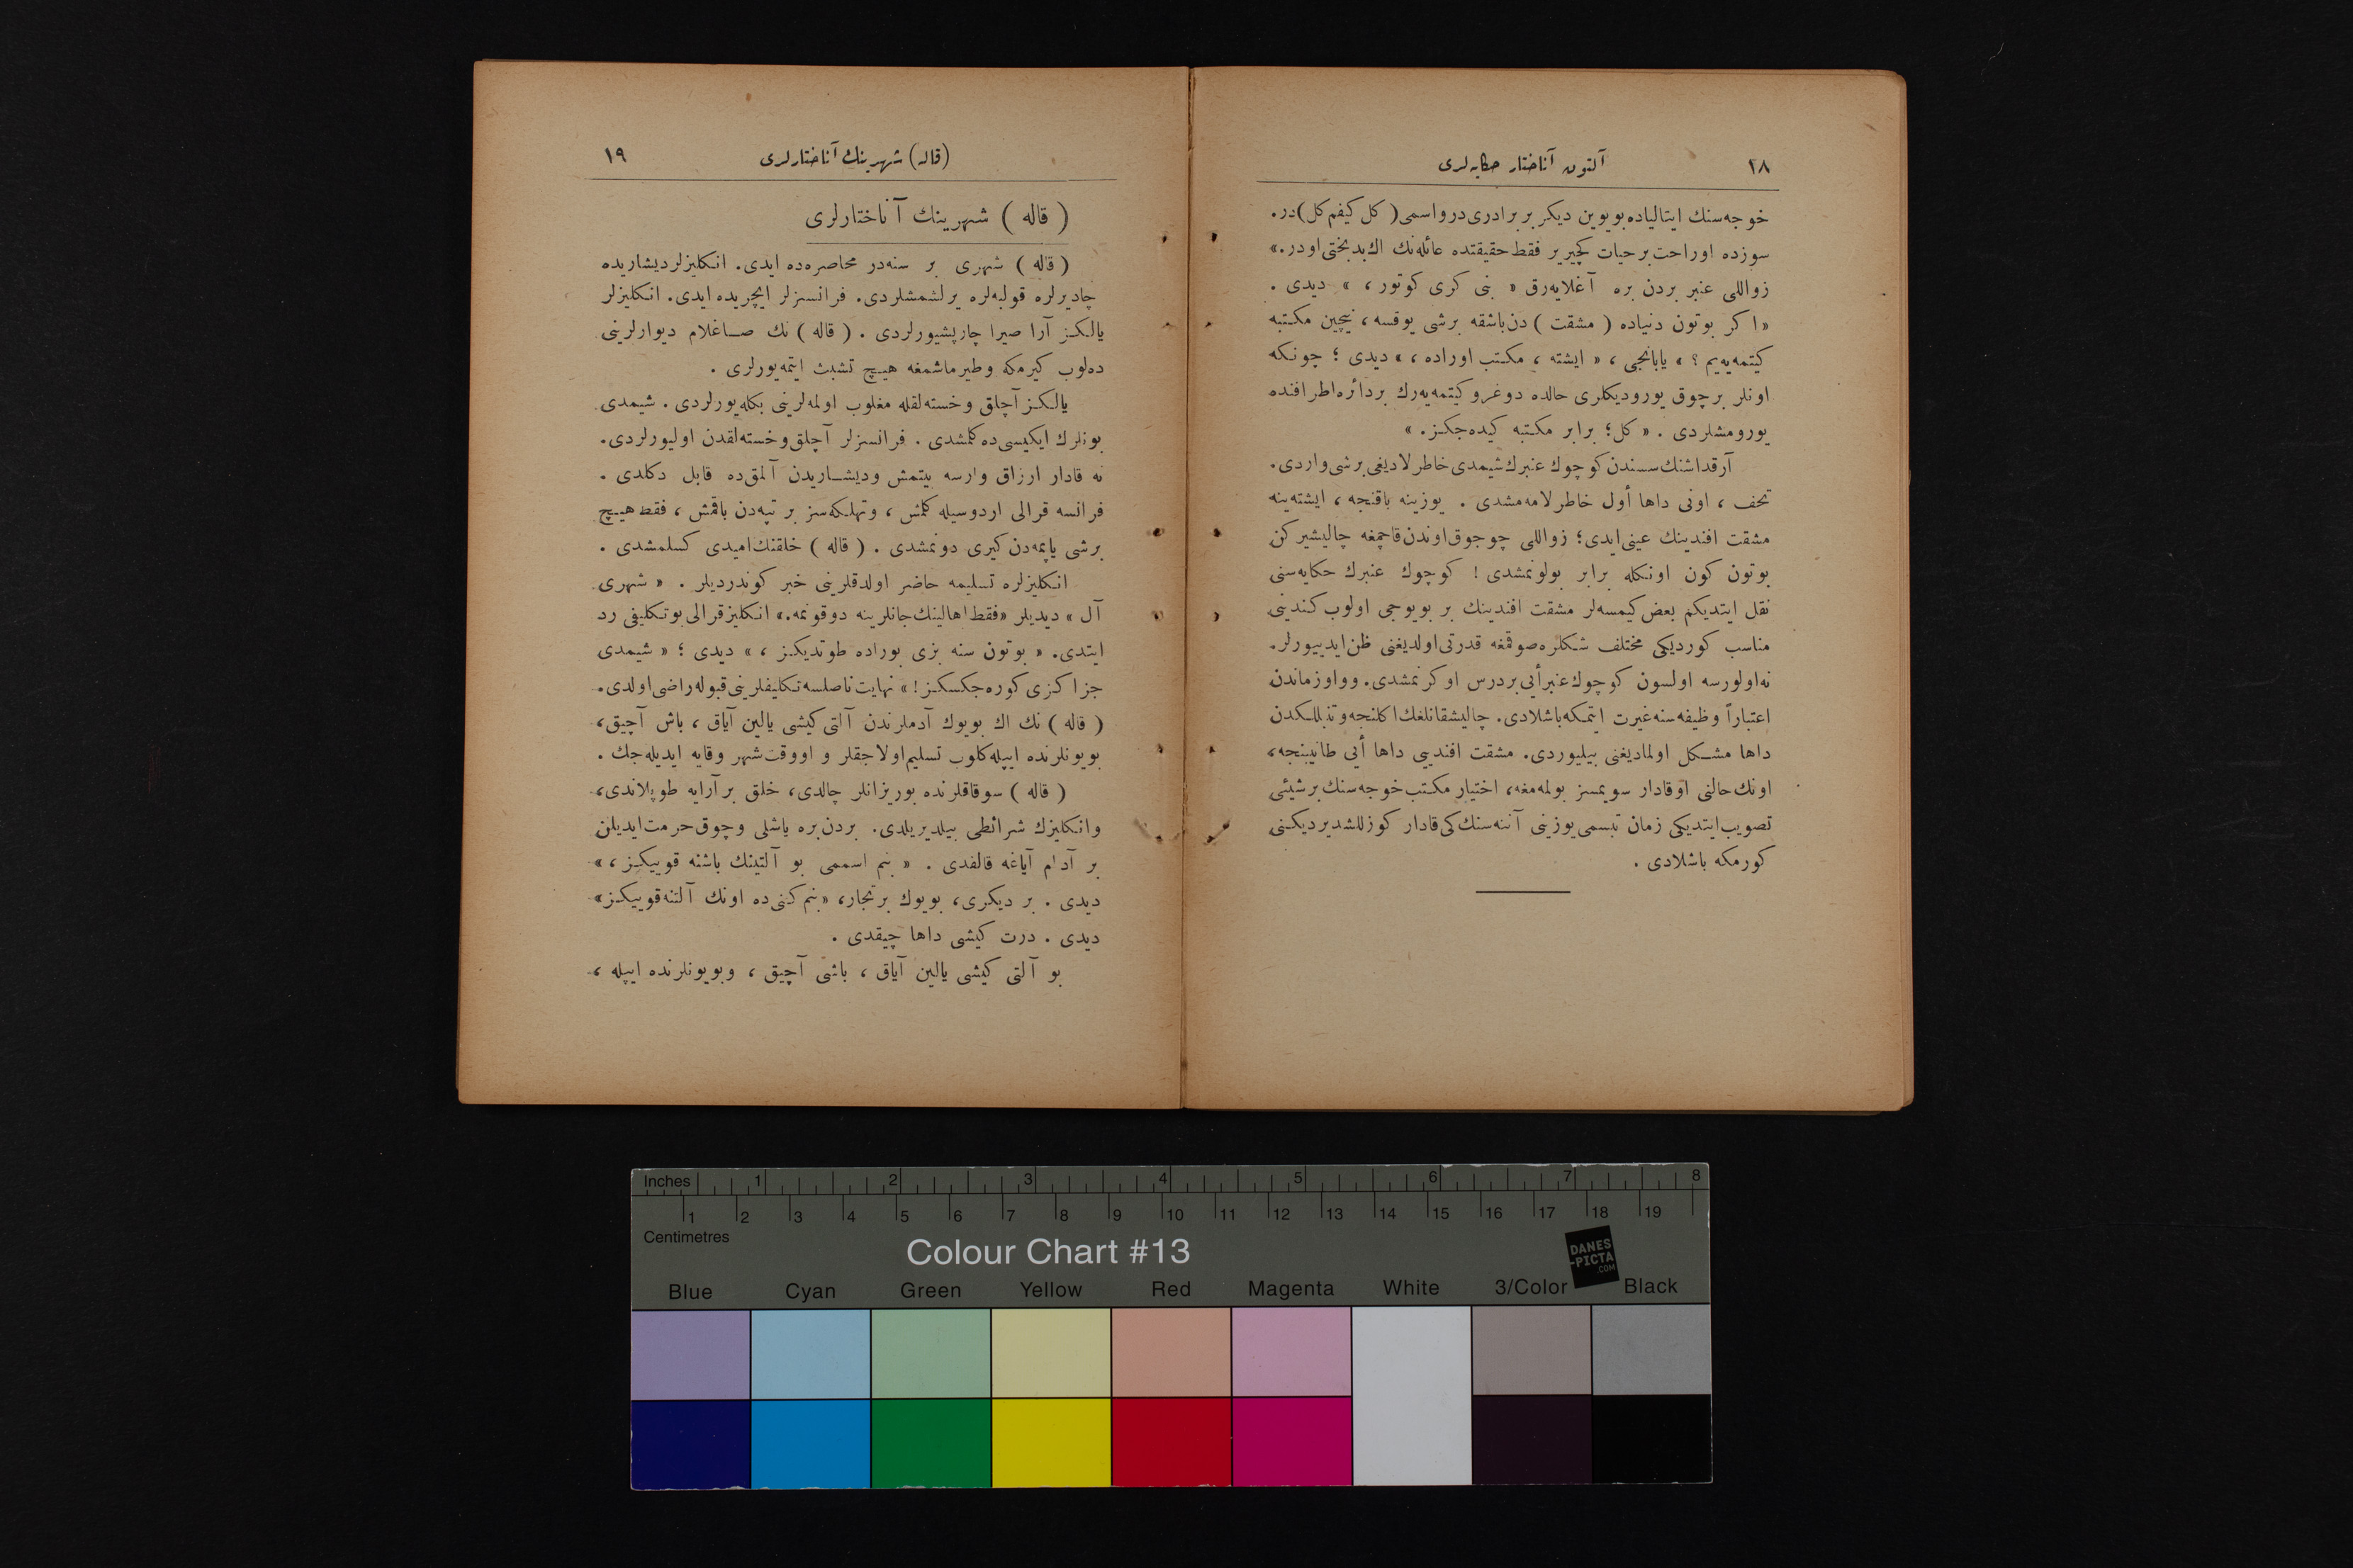 ١٨
آلتون آناختار حكايه‌لری
خوجه‌سنك ايتالياده بويوين ديكر بر برادری در و اسمی (كل كيفم كل) در.
سوزده او راحت بر حيات كچيرير فقط حقيقتده عائله‌نك اك بدبختی اودر.»
زواللی عنبر بردن بره آغلايه‌رق « بنی كری كوتور ، » ديدی .
« اكر بوتون دنياده ( مشقت ) دن باشقه برشی يوقسه ، نيچين مكتبه
كيتمه‌يه‌يم ؟ » يابانجی ، « ايشته ، مكتب اوراده ، » ديدی ؛ چونكه
اونلر بر چوق يوروديكلری حالده دوغرو كيتمه‌يه‌رك بر دائره اطرافنده
يورومشلردی . « كل؛ برابر مكتبه كيده‌جكز. »
آرقداشنك سسندن كوچوك عنبرك شيمدی خاطرلاديغی برشی واردی.
تحف ، اونی داها أول خاطرلامه‌مشدی . يوزينه باقنجه ، ايشته‌ينه
مشقت افندينك عينی ايدی؛ زواللی چوجوق اوندن قاچمغه چاليشيركن
بوتون كون اونكله برابر بولونمشدی ! كوچوك عنبرك حكايه‌سنی
نقل ايتديكم بعض كيمسه‌لر مشقت افندينك بر بويوجی اولوب كندينی
مناسب كورديكی مختلف شكلره صوقمغه قدرتی اولديغنی ظن ايدييورلر.
نه اولورسه اولسون كوچوك عنبر أيی بر درس اوكرنمشدی. و او زماندن
اعتباراً وظيفه‌سنه غيرت ايتمكه باشلادی. چاليشقانلغك اكلنجه و تنبللكدن
داها مشكل اولماديغنی بيليوردی. مشقت افندييی داها أيی طانيينجه،
اونك حالنی او قادار سويمسز بولمه‌مغه، اختيار مكتب خوجه‌سنك بر شيئی
تصويب ايتديكی زمان تبسمی يوزينی آننه‌سنك كی قادار كوزللشديرديكنی
كورمكه باشلادی .
(قاله) شهرينك آناختارلری
١٩
( قاله ) شهرينك آناختارلری
( قاله ) شهری بر سنه‌در محاصره‌ده ايدی. انكليزلر ديشاريده
چاديرلره قولبه‌لره يرلشمشلردی. فرانسزلر ايچريده ايدی. انكليزلر
يالكز آرا صيرا چارپيشيورلردی . ( قاله ) نك صاغلام ديوارلرينی
ده‌لوب كيرمكه و طيرماشمغه هيچ تشبث ايتمه‌يورلری .
يالكز آچلق و خسته‌لقله مغلوب اولمه‌لرينی بكله‌يورلردی . شيمدی
بونلرك ايكيسی ده كلمشدی . فرانسزلر آچلق و خسته‌لقدن اوليورلردی.
نه قادار ارزاق وارسه بيتمش و ديشاريدن آلمق ده قابل دكلدی .
فرانسه قرالی اردوسيله كلمش ، و تهلكه‌سز بر تپه‌دن باقمش ، فقط هيچ
برشی ياپمه‌دن كيری دونمشدی . ( قاله ) خلقنك اميدی كسلمشدی .
انكليزلره تسليمه حاضر اولدقلرينی خبر كوندرديلر . « شهری
آل » ديديلر « فقط اهالينك جانلرينه دوقونمه.» انكليز قرالی بو تكليفی رد
ايتدی. « بوتون سنه بزی بوراده طوتديكز ، » ديدی ؛ « شيمدی
جزاكزی كوره‌جكسكز! » نهايت ناصلسه تكليفلرينی قبوله راضی اولدی.
( قاله ) نك اك بويوك آدملرندن آلتی كيشی يالين آياق ، باش آچيق،
بويونلرنده ايپله كلوب تسليم اولاجقلر و او وقت شهر وقايه ايديله‌جك .
( قاله ) سوقاقلرنده بوريزانلر چالدی، خلق بر آرايه طوپلاندی،
و انكليزك شرائطی بيلديريلدی. بردن بره ياشلی و چوق حرمت ايديلن
بر آدام آياغه قالقدی . « بنم اسممی بو آلتينك باشنه قوييكز ، »
ديدی . بر ديكری، بويوك بر تجار، « بنم كنی ده اونك آلتنه قوييكز»
ديدی . درت كيشی داها چيقدی .
بو آلتی كيشی يالين آياق ، باشی آچيق ، و بويونلرنده ايپله ،
Inches 1 2 3 4 5 6 7 8
1 2 3 4 5 6 7 8 9 10 11 12 13 14 15 16 17 18 19
Centimetres
Colour Chart #13
DANES
-PICTA
.COM
Blue Cyan Green Yellow Red Magenta White 3/Color Black